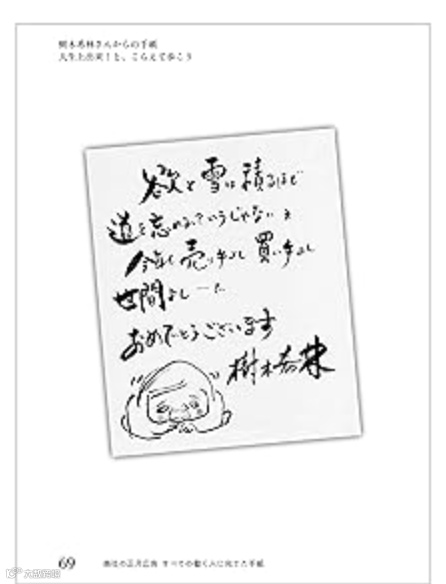 樹木希林さんからの手紙
人生上出来!と、こらえて歩こう
欲と雪は積るほど
道を忘れるっていうじゃないえ
今年も売り手よし買い手よし
世間よし
おめでとうございます
樹木希林
69
西武の正月広告 すべての働く人に宛てた手紙
大悲阿娟